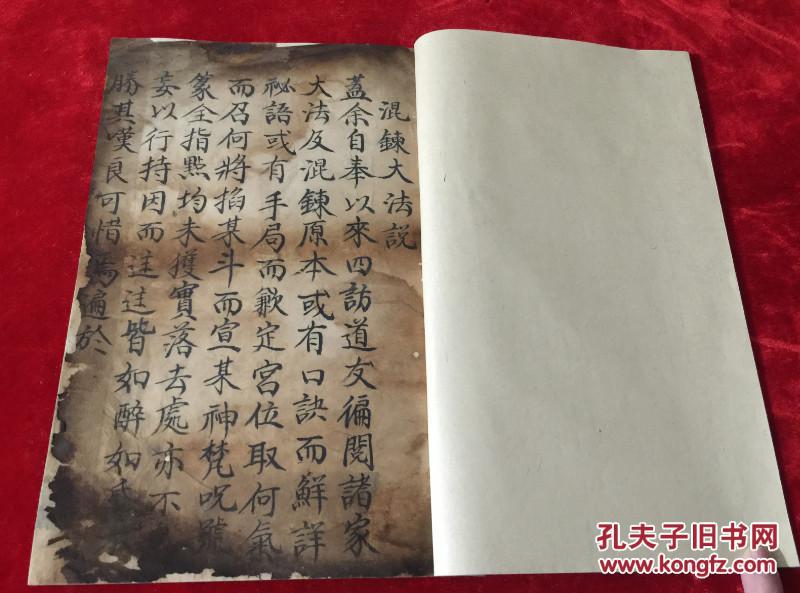 混鍊大法説
蓋余自奉以來四訪道友徧閱諸家
大法及混鍊原本或有口訣而鮮詳
祕語或有手局而歉定宮位取何氣
而召何將掐某斗而宣某神梵呪號
篆全指㸃均未獲實落去處亦不
妄以行持因而迬迬皆如醉如
勝其嘆良可惜焉遍於
孔夫子旧书网
www.kongfz.com